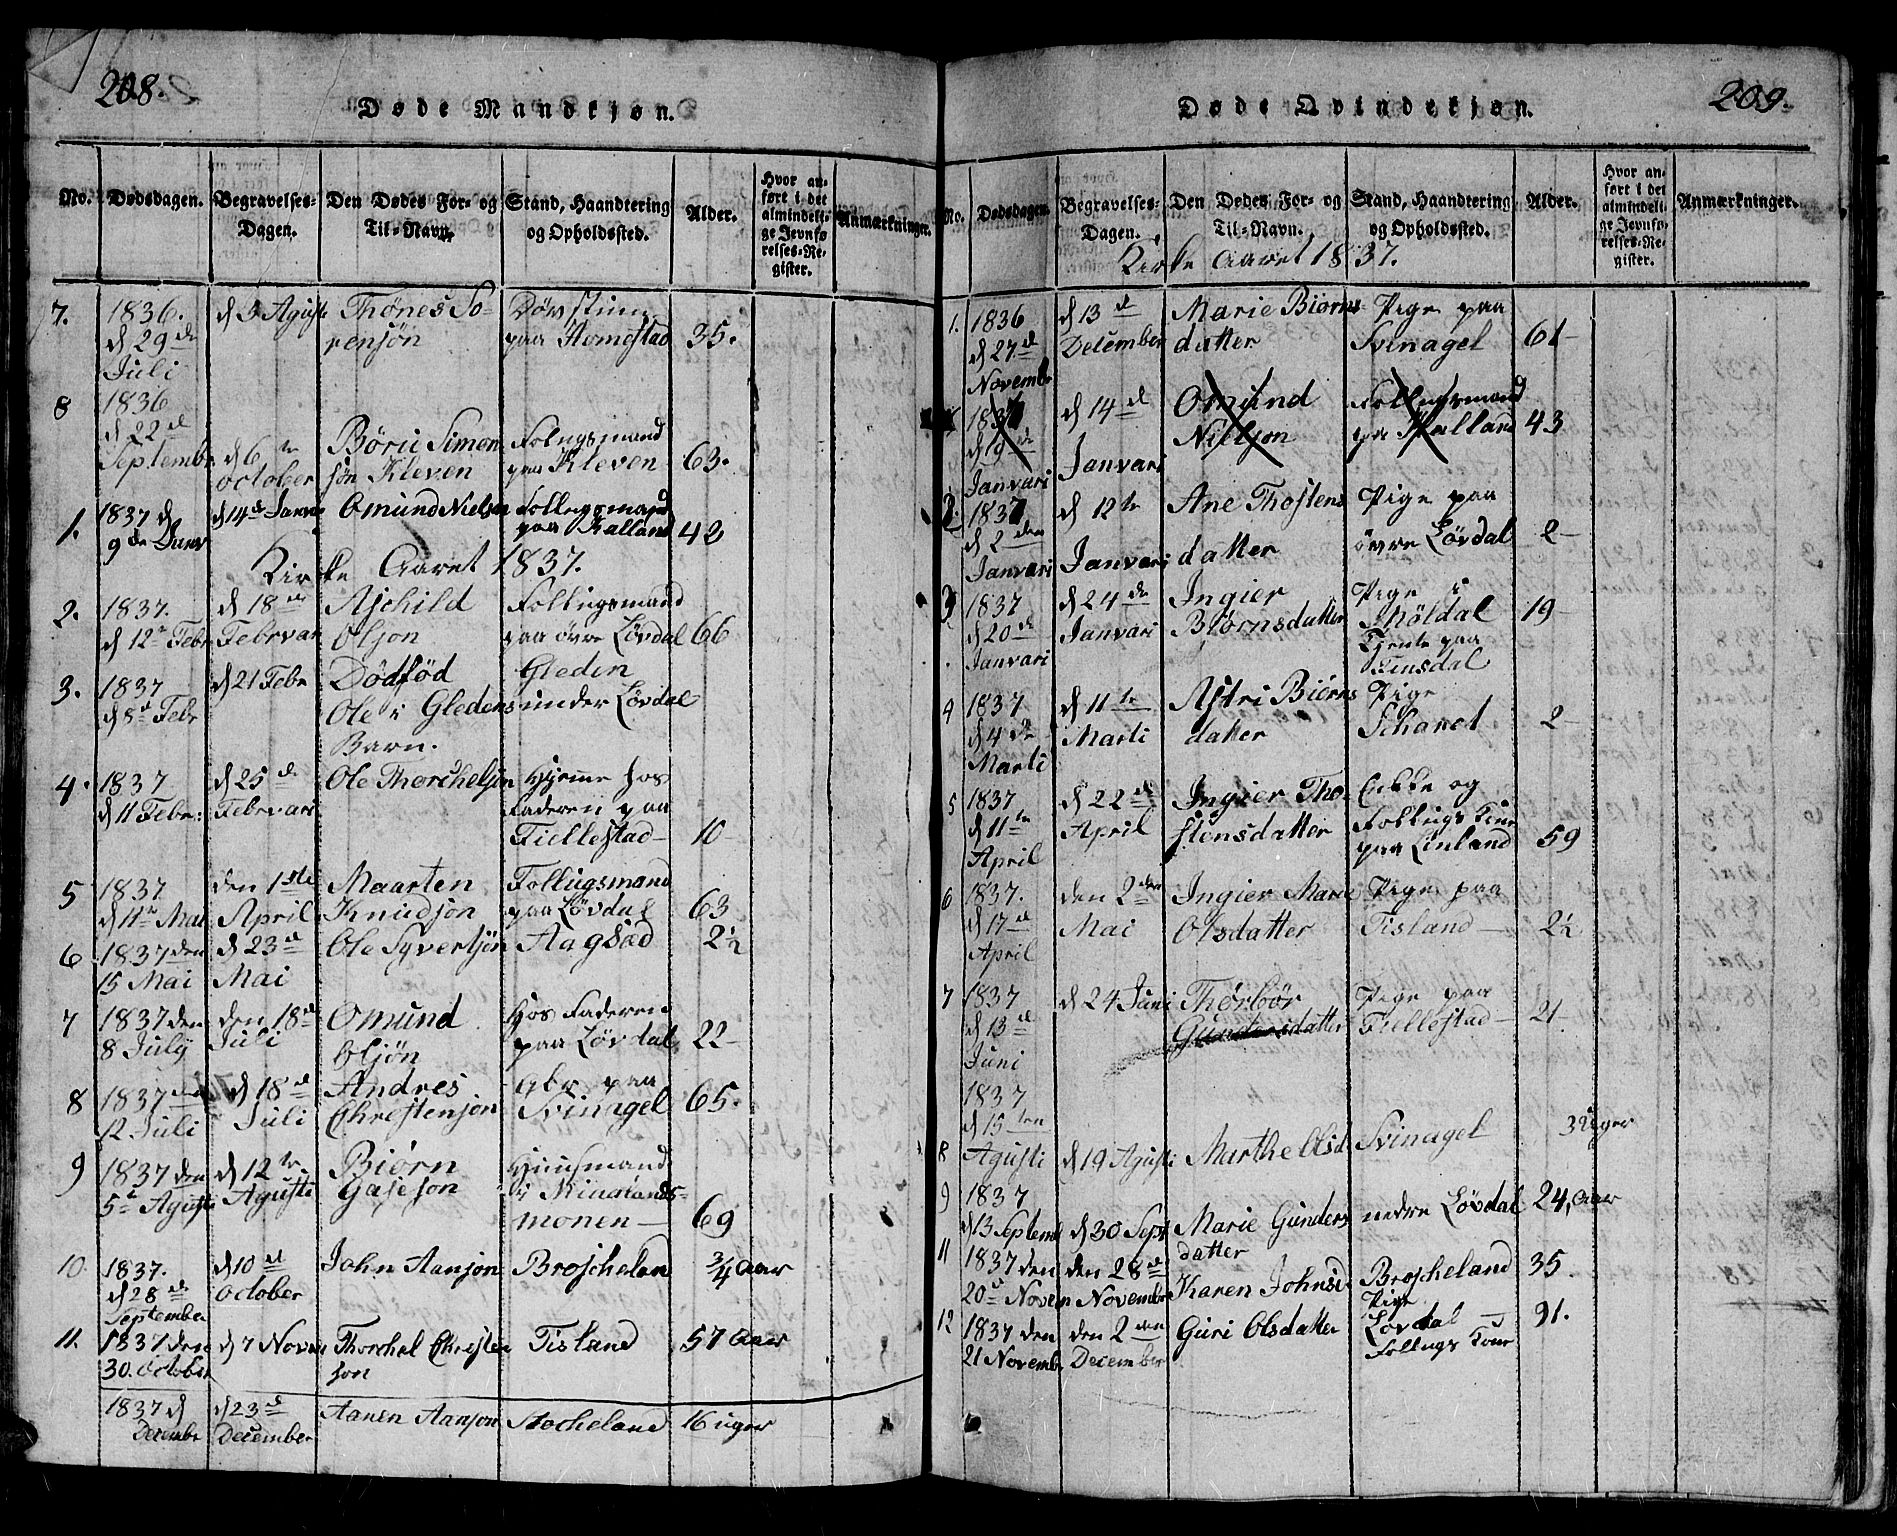 208.
Døde Mandkjøn.
No. Dødsdagen. Begravelses-Dagen. Den Dødes For- og Til-Navn. Stand, Haandtering og Opholdssted. Alder. Hvor anført i det almindelige Jevnførelses-Register. Anmærkninger.
7. 1836. d 29de Juli
d 5 Agusti
Thønes Sørensøn
paa Homestad
35.
8 1836 d 22de Septembr
d 6te October
Børie Simonsøn Kleven
Folugsmand paa Kleven
63.
1. 1837 d 9de Januar
d 14de Janua
Omund Nielsen
Follugsmand paa Halland
42
Kirke Aaret 1837.
2. 1837. d 12te Febr
d 18de Februar
Aschild Olsøn
Follugsmand paa øvre Løvdal
66
3. 1837 d 8de Febr
d 21 Febr
Dødfød Ole i Gledens Barn.
Gleden under Løvdal
4. 1837 d 11 Febr:
d 25de Februari
Ole Thorchelsøn
Hjeme hos Faderen paa Fiellestad
10
5 1837 d 11te Mai
den 1ste April
Maarten Knudsøn
Follugsmand paa Løvdal
63
6 1837 den 15 Mai
d 23de Mai
Ole Syvertsøn
Aagsæd
2½
7 1837 den 8 July
den 18de Juli
Omund Olsøn
Hos Faderen paa Løvdal
22
8 1837 den 12 Juli
d 18de Juli
Andres Chrestensøn
Gbr paa Svinagel
65.
9 1837 den 5te Agusti
d 12te Agusti
Biørn Gaseson
Huusmand monen
69
10. 1837. d 28de September
d 10de October
John Aansøn
Broscheland
¾ Aar
11. 1837 den 30. October
d 7 Novem
Thorchel Chrestensøn
Tisland
57 Aar
1837 d Decembr
d 23de December
Aanen Aanson
Stocheland
16 uger
209.
Døde Qvindekjøn.
No. Dødsdagen. Begravelses-Dagen. Den Dødes For- og Til-Navn. Stand, Haandtering og Opholdssted. Alder. Hvor anført i det almindelige Jevnførelses-Register. Anmærkninger.
Kirke Aaret 1837.
1. 1836 d 27de Novembr
d 13de December
Marie Biørnsdatter
Pige paa Svinagel
61
1837 d 9de Januari
d 14de Januari
Omund Nielsøn
Follugsmand paa Halland
43
2. 1837 d 2den Januari
d 12te Januari
Ane Thostensdatter
Pige paa øvre Løvdal
2
3 1837 d 20de Januari
d 24de Januari
Ingier Biørnsdatter
Pige i Møldal Tjente paa Linsdal
19
4 1837 d 4de Marti
d 11te Marti
Astri Biørnsdatter
Pige Scharet
2
5 1837 d 11te April
d 22de April
Ingier Thostensdatter
Enke og Follugs Kone paa Linland
59
6 1837. d 17de April
den 2den Mai
Ingier Marie Olsdatter
Pige paa Tisland
2½
7 1837 d 13de Juni
d 24 Juni
Thorbør Gundersdatter
Pige paa Fiellestad
21.
8 1837 d 15ten Agusti
d 19 Agusti
Marthe Olsd
Svinagel
3 Uger
9 1837 d 13 Septemb
d 30 Sept
Marie Gundersdatter
nedre Løvdal
24, Aar
11 1837 den 20de Novem
den 28de Novembr
Karen Johnsd
Broscheland Pige
35.
12 1837 den 21 Novembr
den 2den December
Guri Olsdatter
Løvdal Follugs Kone
91.